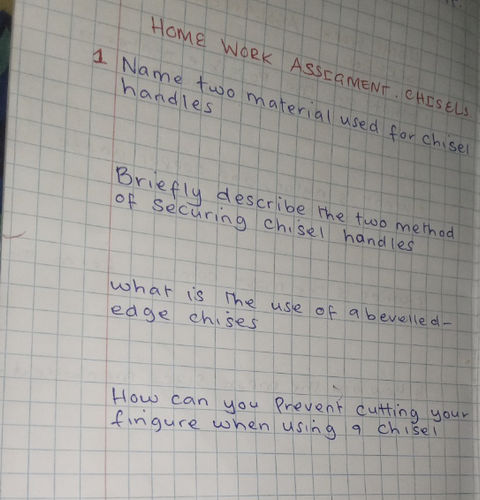 HOME WORK ASSIGMENT. CHISELS
1 Name two material used for chisel
handles
Briefly describe the two method
of securing chisel handles
what is the use of a bevelled-
edge chises
How can you Prevent cutting your
fingure when using a chisel